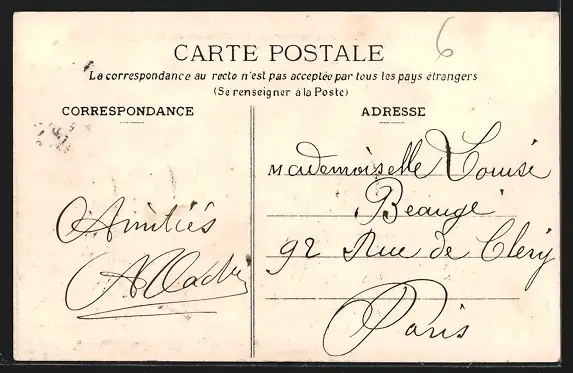 6
CARTE POSTALE
La correspondance au recto n'est pas acceptée par tous les pays étrangers
(Se renseigner à la Poste)
CORRESPONDANCE
ADRESSE
Amitiés
Mademoiselle Louise
Beaugé
92 Rue de Cléry
Paris